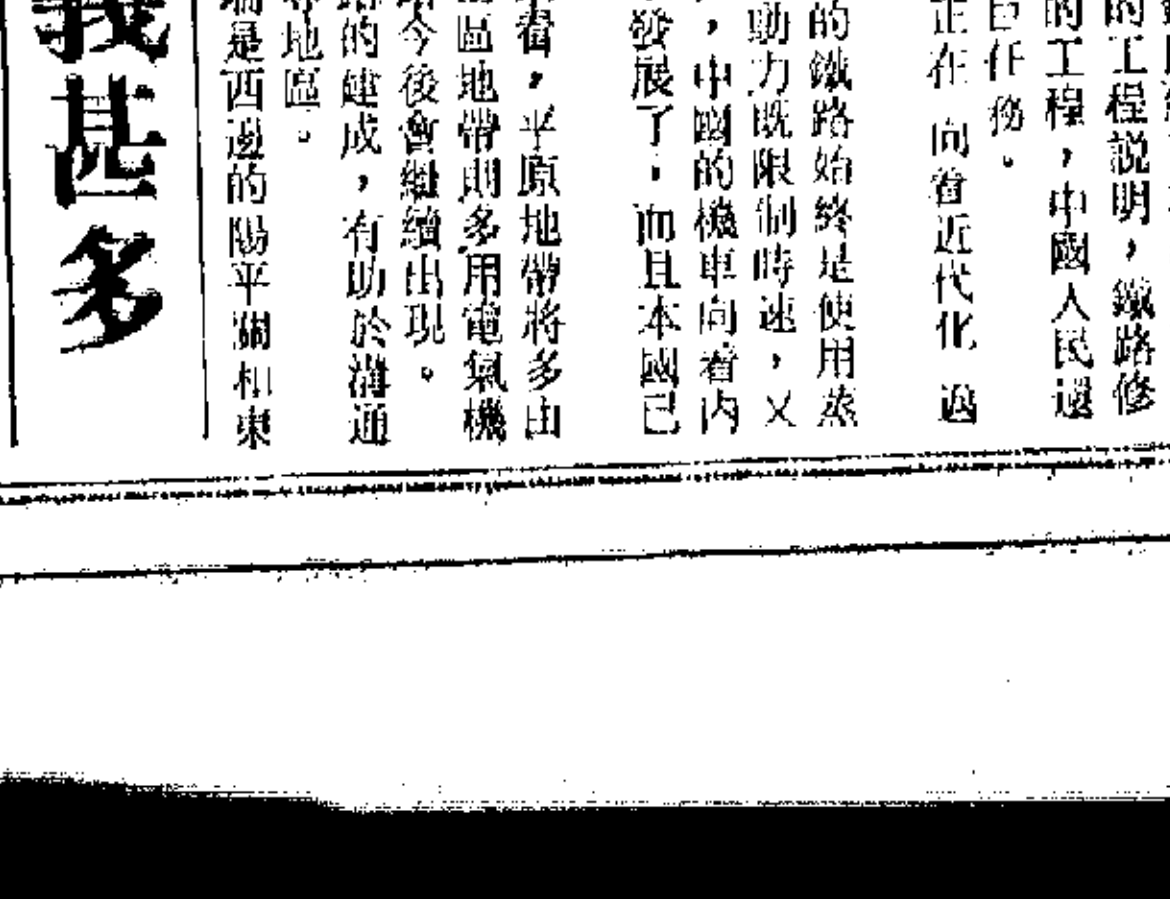 的工程説明，鐵路修
的工程，中國人民還
巨任務。
正在向着近代化邁
的鐵路始終是使用蒸
動力既限制時速，又
，中國的機車向着内
發展了；而且本國已
看，平原地帶將多由
區地帶則多用電氣機
今後會繼續出現。
的建成，有助於溝通
地區。
端是西邊的陽平關相東
義甚多